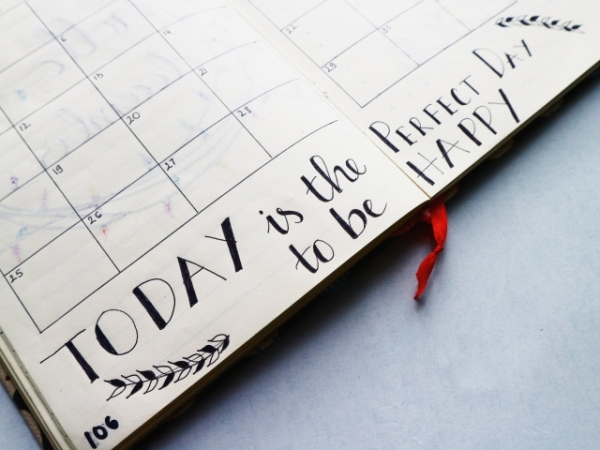 6
12
13
14
18
19
20
21
22
25
26
27
28
29
TODAY is the
PERFECT DAY
to be
HAPPY
106